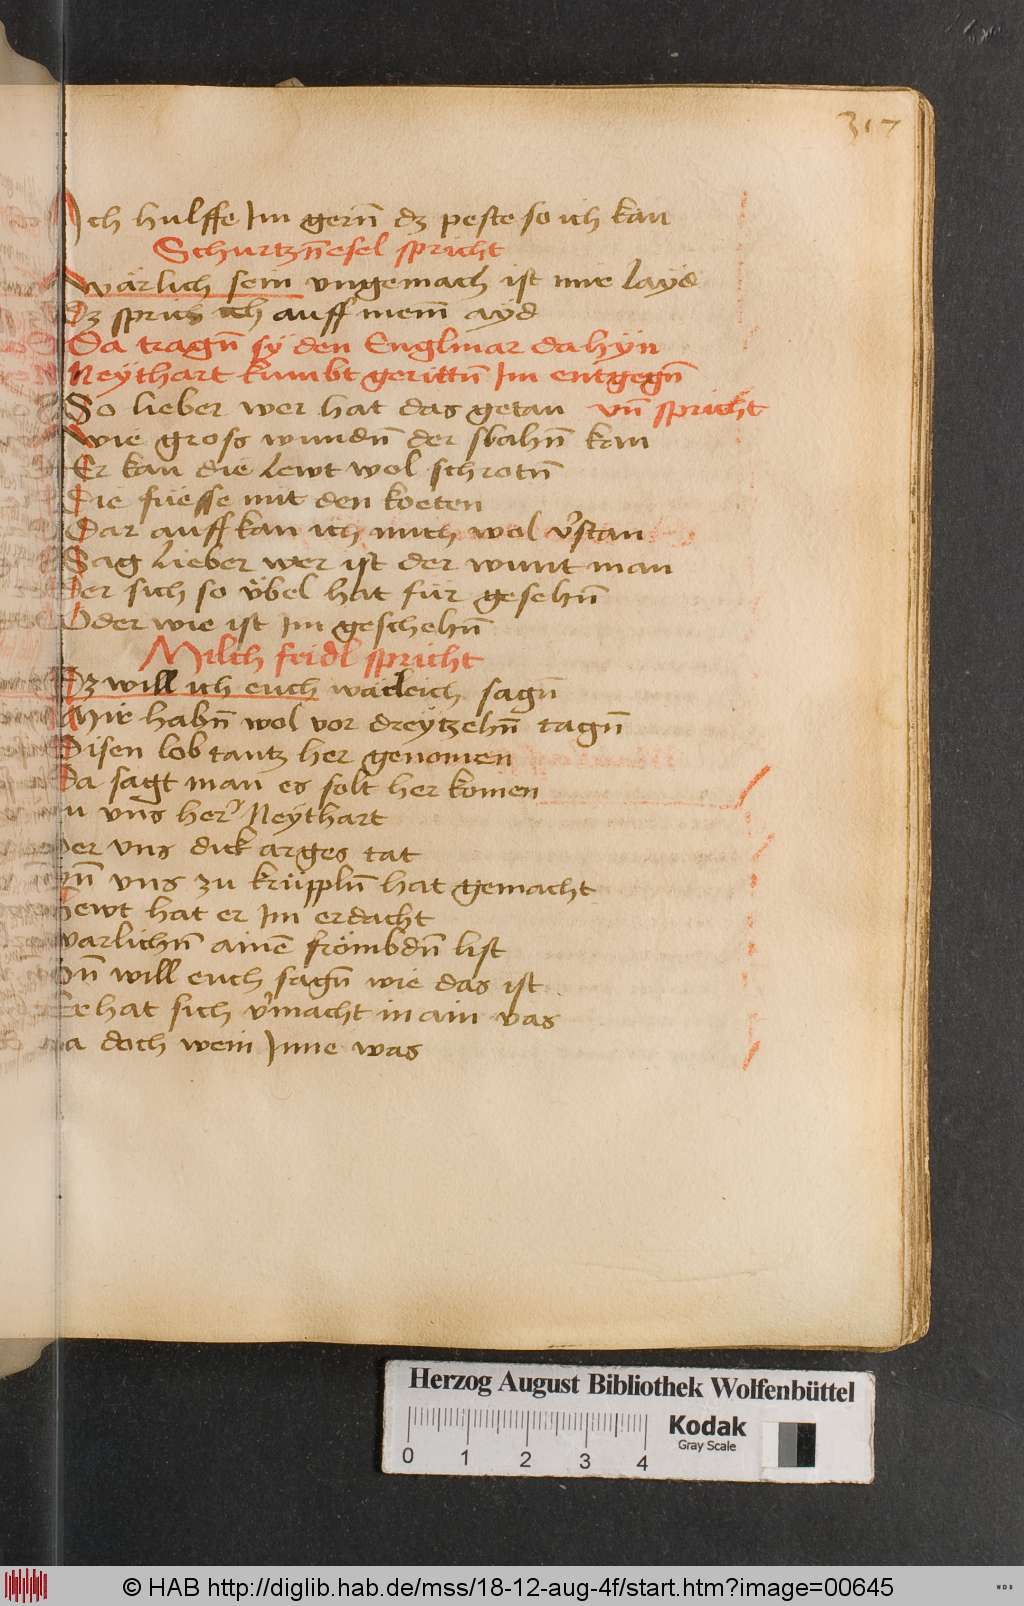 317
Ich hulffe Im gern̄ dz peste so ich kan
Schurtzn̄esel spricht
Wärlich sein ungemach ist mir layd
Dz sprich ich auff mein̄ ayd
Da tragn̄ sÿ den Englmar da hÿn
Neythart kumbt gerittn̄ Im entgegn̄
So lieber wer hat das getan vn̄ spricht
Wie gross wundn̄ der slahn̄ kan
Er kan die Lewt wol schrotn̄
Die füesse mit den koeten
Dar auff kan ich mich wol v̓stan
Sag Lieber wer ist der wunt man
Der sich so v̈bel hat für gesehn̄
Oder wie ist Im geschehn̄
Milch feidl spricht
Dz will ich euch wärleich sagn̄
Wir habn̄ wol vor dreÿtzehn̄ tagn̄
Disen lob tantz her genomen
Da sagt man es solt her komen
u vns her̓ Neÿthart
Der vns dick arges tat
vn̄ vns zu krüppln̄ hat gemacht
hewt hat er Im erdacht
warlichn̄ ainē frömbdn̄ list
vn̄ will euch sagn̄ wie das ist
Er hat sich v̓macht in ain vas
a doch wein Inne was
Herzog August Bibliothek Wolfenbüttel
Kodak
Gray Scale
0 1 2 3 4
© HAB http://diglib.hab.de/mss/18-12-aug-4f/start.htm?image=00645